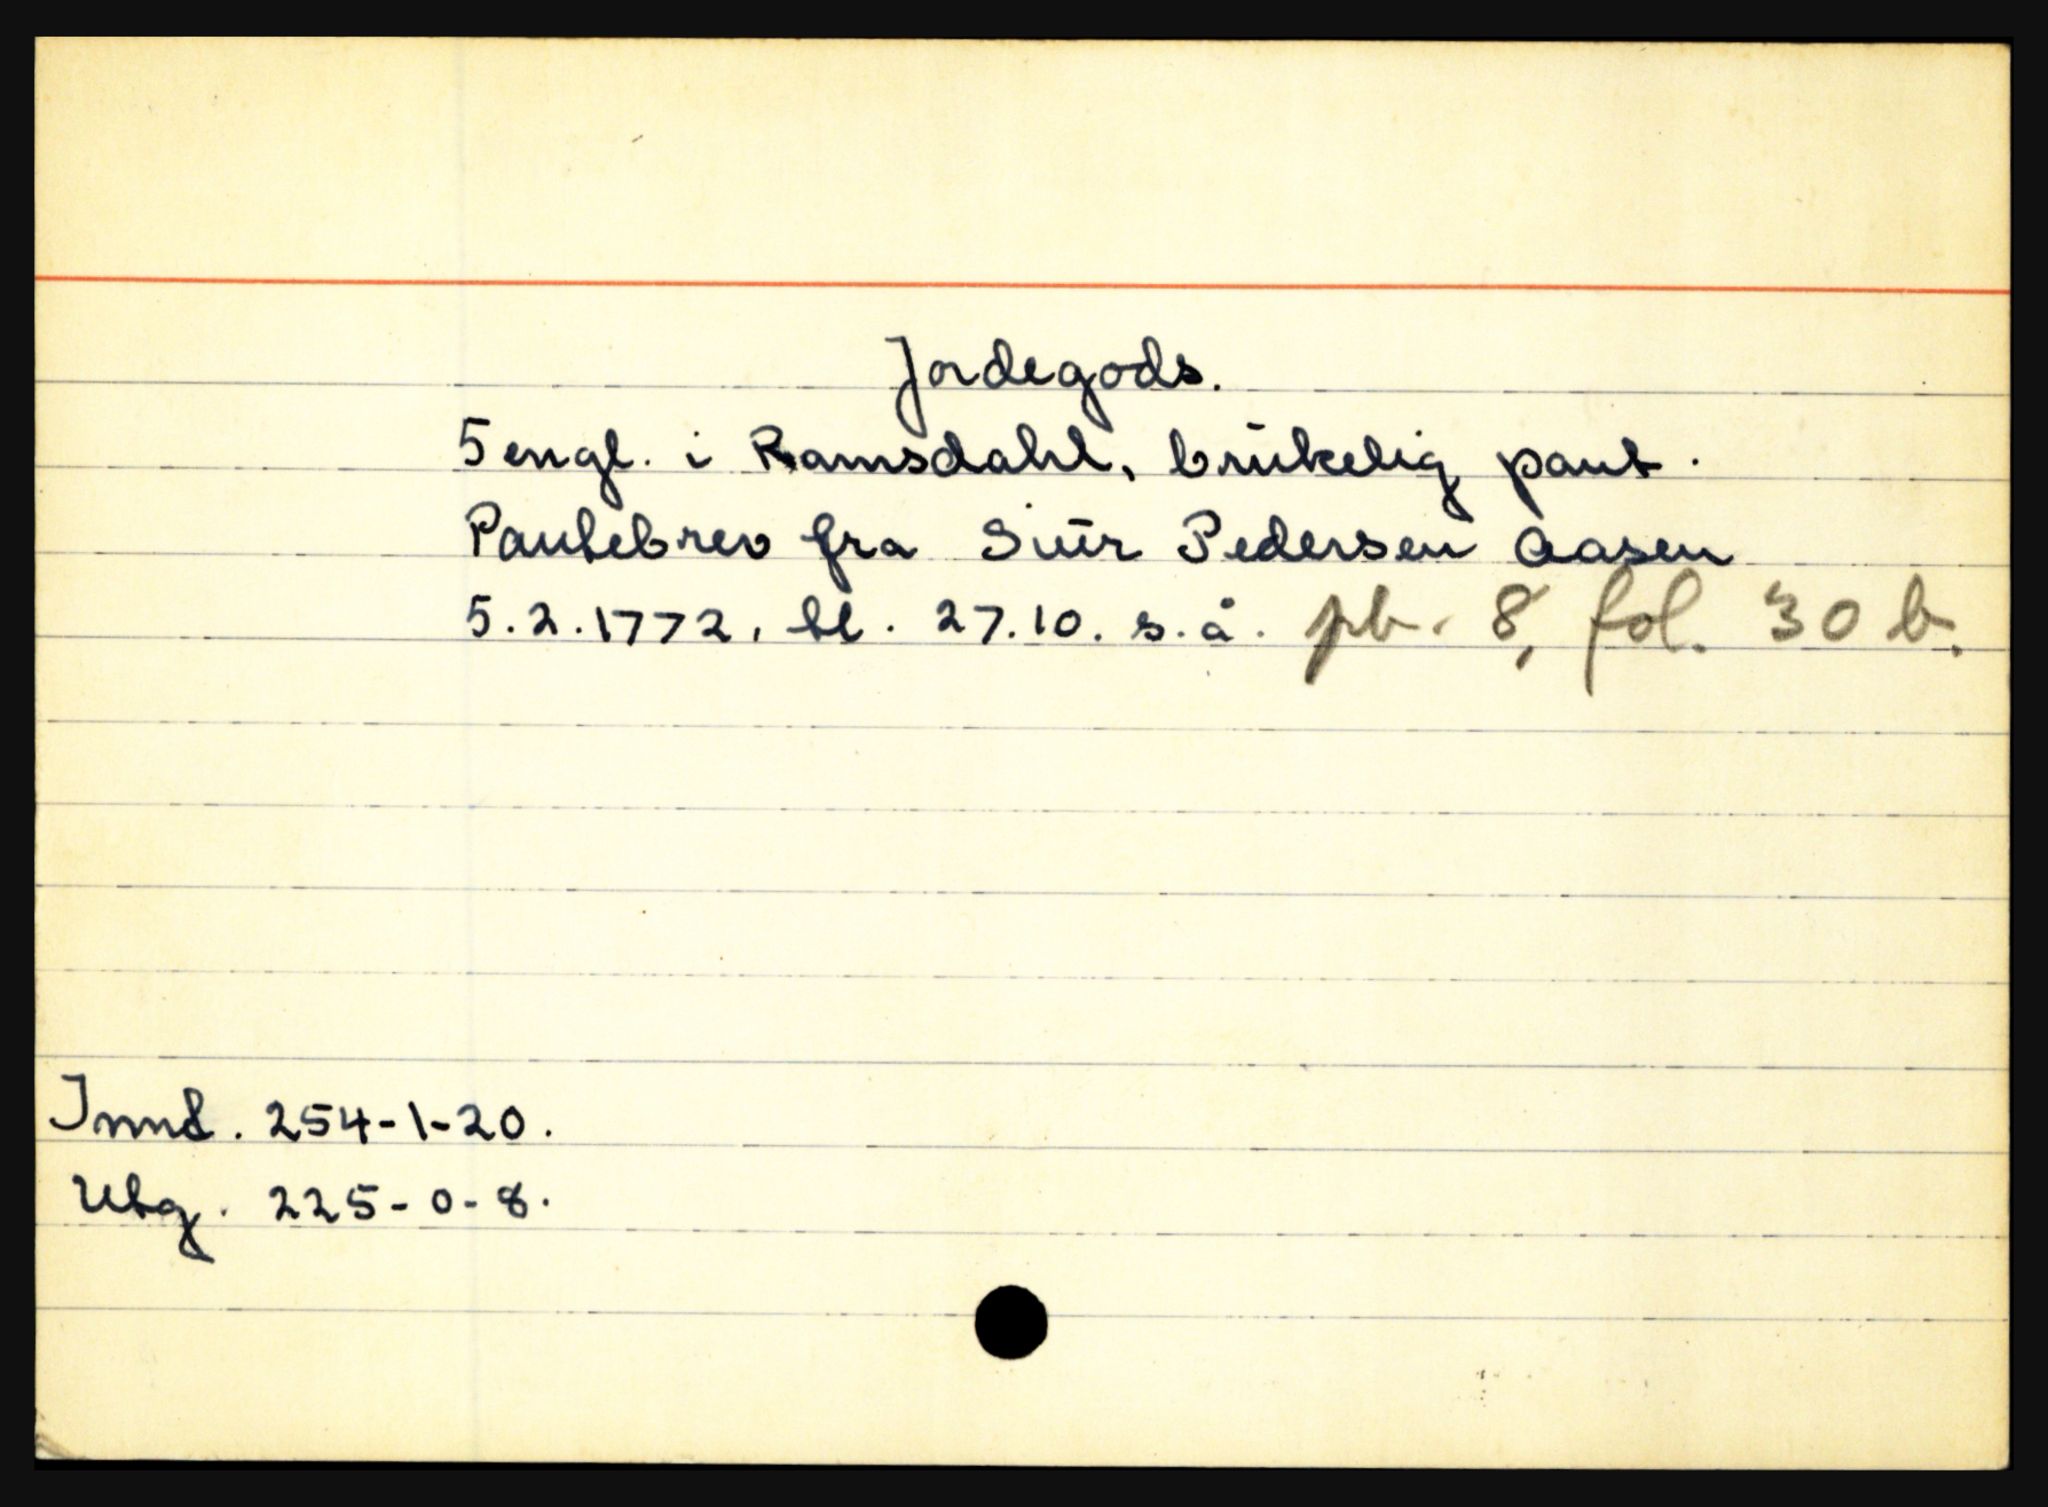 Jordegods.
5 engl. i Ramsdahl, brükelig pant.
Pantebrev fra Siür Pedersen Aasen
5.2.1772, tl. 27.10. s.å. pb. 8, fol. 30 b.
Innt. 254-1-20.
Utg. 225-0-8.